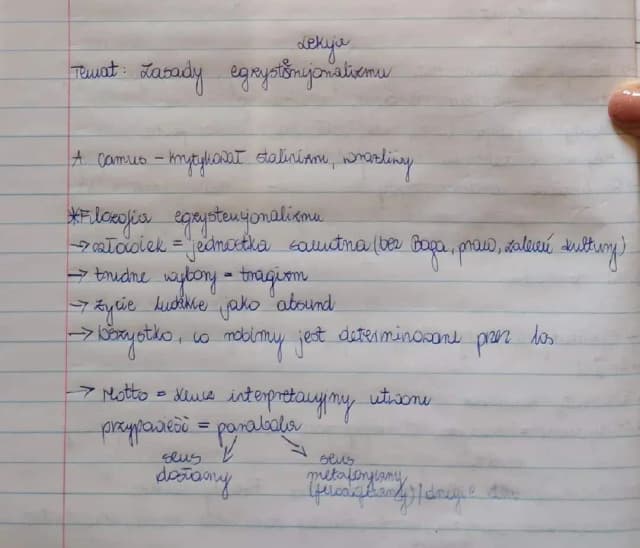 Lekcja
Temat: Zasady egzystencjonalizmu
A. Camus - krytykował stalinizm, wrażliwy
*Filozofia egzystencjonalizmu
→ człowiek = jednostka samotna (bez Boga, praw, zaleceń kultury)
→ trudne wybory = tragizm
→ życie ludzkie jako absurd
→ wszystko, co robimy jest determinowane przez los
→ Motto = klucz interpretacyjny utworu
przypowieść = parabola
sens sens
dosłowny metaforyczny
/ drugie